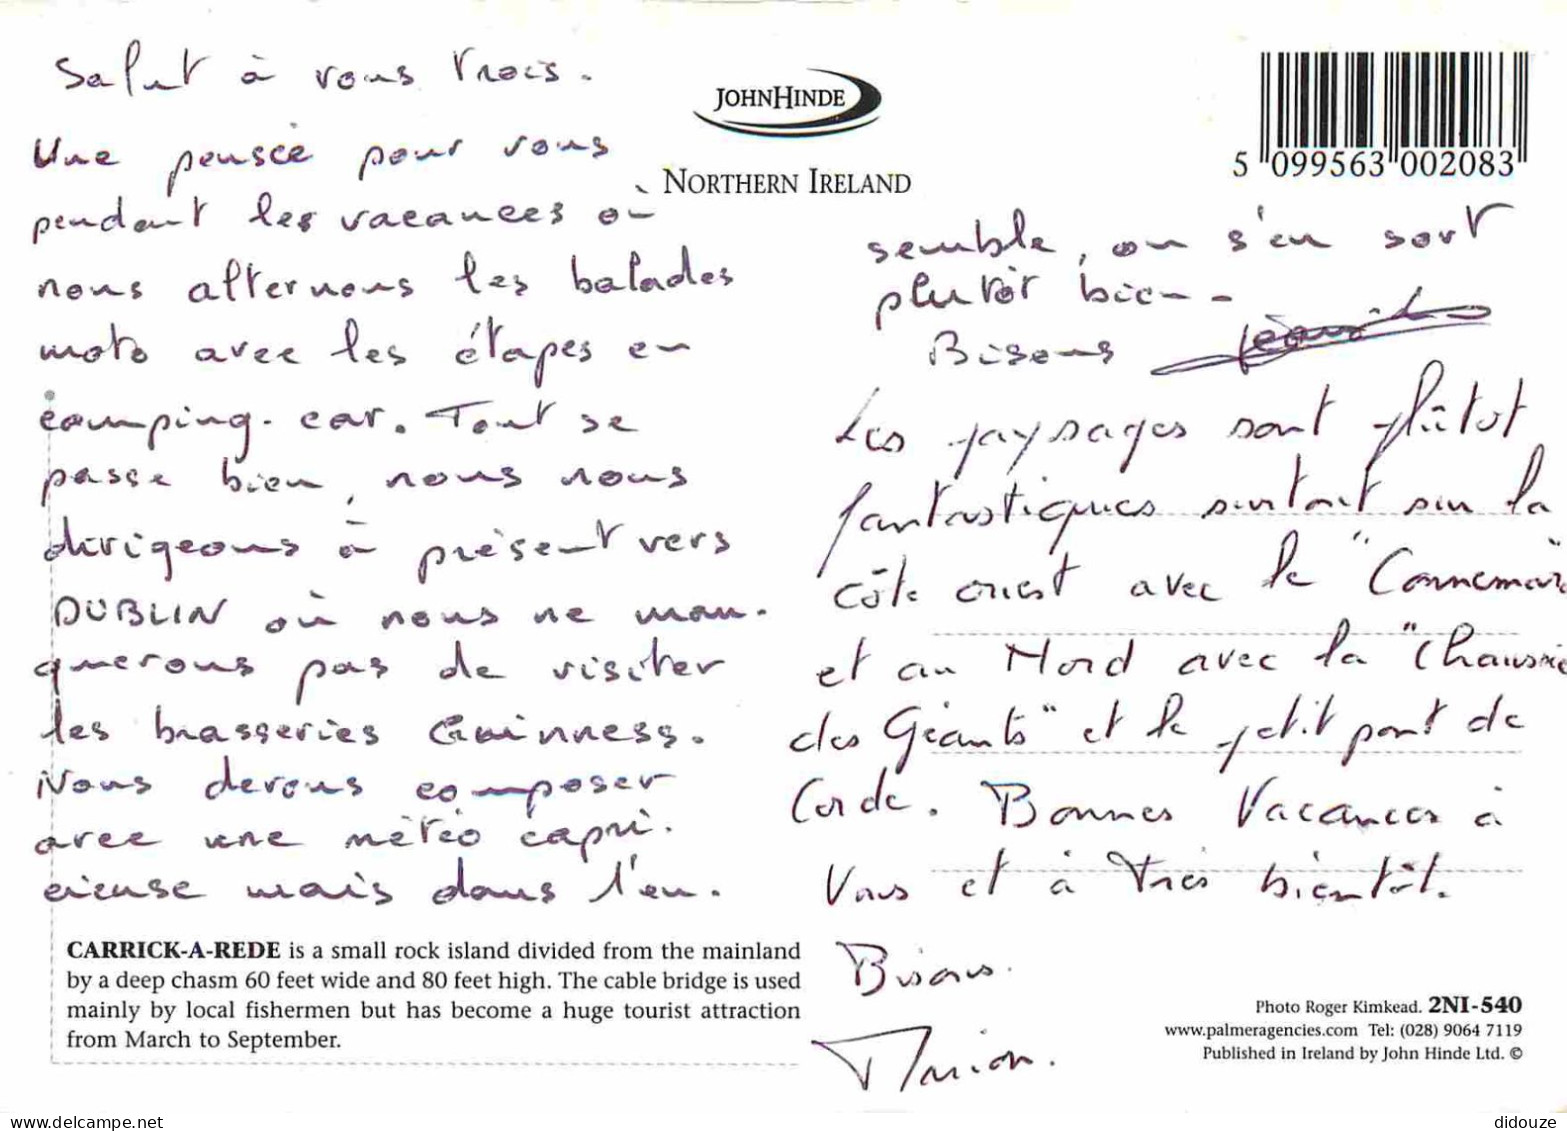 Salut à vous trois.
Une pensée pour vous
pendant les vacances où
nous alternons les balades
moto avec les étapes en
camping-car. Tout se
passe bien, nous nous
dirigeons à présent vers
DUBLIN où nous ne man-
querons pas de visiter
les brasseries Guinness.
Nous devons composer
avec une météo capri-
cieuse mais dans l'en-
CARRICK-A-REDE is a small rock island divided from the mainland
by a deep chasm 60 feet wide and 80 feet high. The cable bridge is used
mainly by local fishermen but has become a huge tourist attraction
from March to September.
JOHNHINDE
NORTHERN IRELAND
5 099563 002083
semble, on s'en sort
plutôt bien.
Bisous
Les paysages sont plûtot
fantastiques surtout sur la
côte ouest avec le "Connemara"
et au Nord avec la "Chaussée
des Géants" et le petit pont de
Corde. Bonnes Vacances à
Vous et à très bientôt.
Bisous.
Marion.
Photo Roger Kimkead. 2NI-540
www.palmeragencies.com Tel: (028) 9064 7119
Published in Ireland by John Hinde Ltd. ©
delcampe.net
didouze